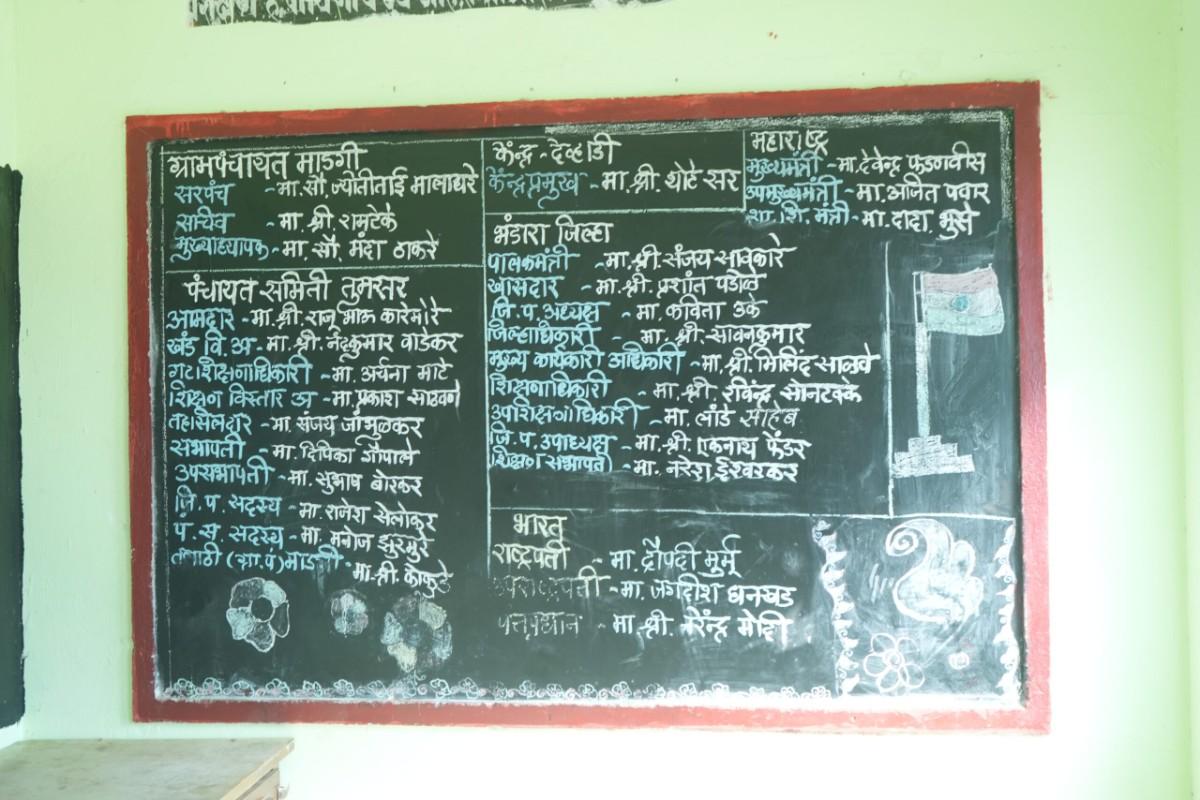 ग्रामपंचायत माडगी
सरपंच - मा. सौ. ज्योतीताई मालाधरे
सचिव - मा. श्री. रामटेके
मुख्याध्यापक - मा. सौ. मंदा ठाकरे
पंचायत समिती तुमसर
आमदार - मा. श्री. राजू भाऊ कारेमोरे
खंड वि. अ - मा. श्री. नंदकुमार वाडेकर
गटशिक्षणाधिकारी - मा. अर्चना माटे
शिक्षण विस्तार अ - मा. प्रकाश साठवणे
तहसिलदार - मा. संजय जांभुळकर
सभापती - मा. दिपिका गौपाले
उपसभापती - मा. सुभाष बोरकर
जि. प. सदस्य - मा. राजेश सेलोकर
पं. स. सदस्य - मा. मनोज झुरमुरे
तलाठी (ग्रा.पं) माडगी - मा. श्री. कोकुडे
केंन्द्र - देव्हाडी
केंन्द्रप्रमुख - मा. श्री. थोटे सर
महाराष्ट्र
मुख्यमंत्री - मा. देवेन्द्र फडणवीस
उपमुख्यमंत्री - मा. अजित पवार
शा. शि. मंत्री - मा. दादा भुसे
भंडारा जिल्हा
पालकमंत्री - मा. श्री. संजय सावकारे
खासदार - मा. श्री. प्रशांत पडोळे
जि. प. अध्यक्ष - मा. कविता उके
जिल्हाधिकारी - मा. श्री. सावनकुमार
मुख्य कार्यकारी अधिकारी - मा. श्री. मिलिंद साळवे
शिक्षणाधिकारी - मा. श्री. रविंन्द्र सोनटक्के
उपशिक्षणाधिकारी - मा. लांडे साहेब
जि. प. उपाध्यक्ष - मा. श्री. एकनाथ फेंडर
शिक्षण सभापती - मा. नरेश ईश्वरकर
भारत
राष्ट्रपती - मा. द्रौपदी मुर्मू
उपराष्ट्रपती - मा. जगदीश धनखड
पंतप्रधान - मा. श्री. नरेंन्द्र मोदी